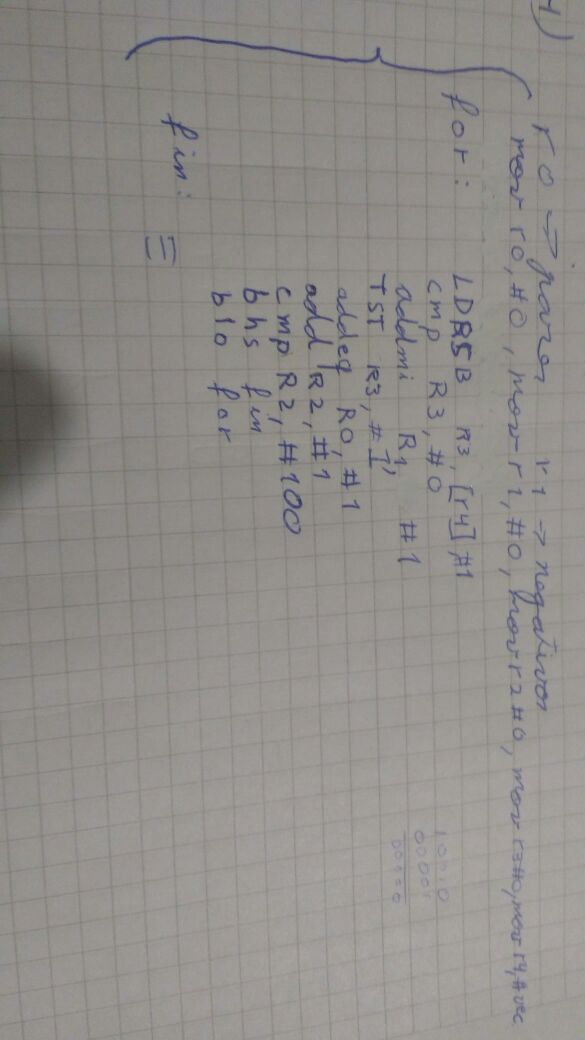 4)
r0 → pares r1 → negativos
mov r0, #0, mov r1, #0, mov r2 #0, mov r3 #0, mov r4, #vec
for: LDRSB R3, [r4] #1
cmp R3, #0
addmi R1, #1
TST R3, #1,
addeq R0, #1
add R2, #1
cmp R2, #100
bhs fin
blo for
fin:
10010
00001
00000